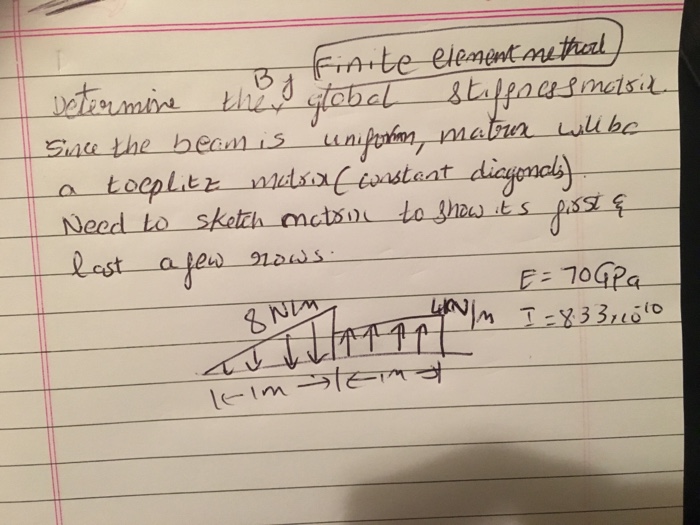 By Finite element method
Determine the global stiffness matrix.
Since the beam is uniform, matrix will be
a toeplitz matrix (constant diagonals).
Need to sketch matrix to show its first &
last a few rows.
E = 70GPa
8 N/m
I = 8.33x10^-10
|← 1m →|← 1m →|